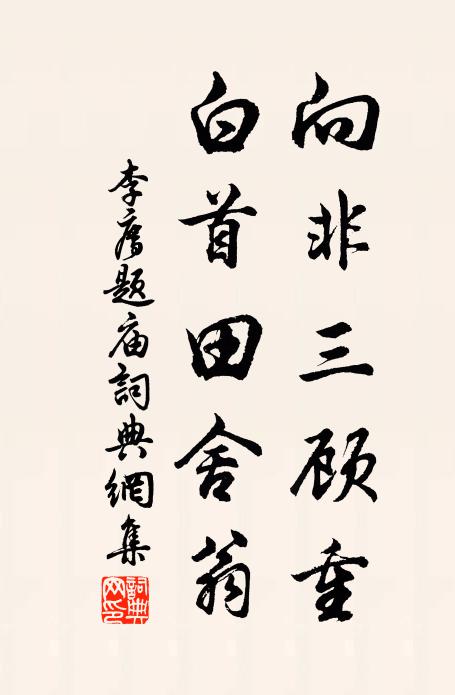 向非三顾重
白首田舍翁
李廌题庙詞典網集
詞典网印